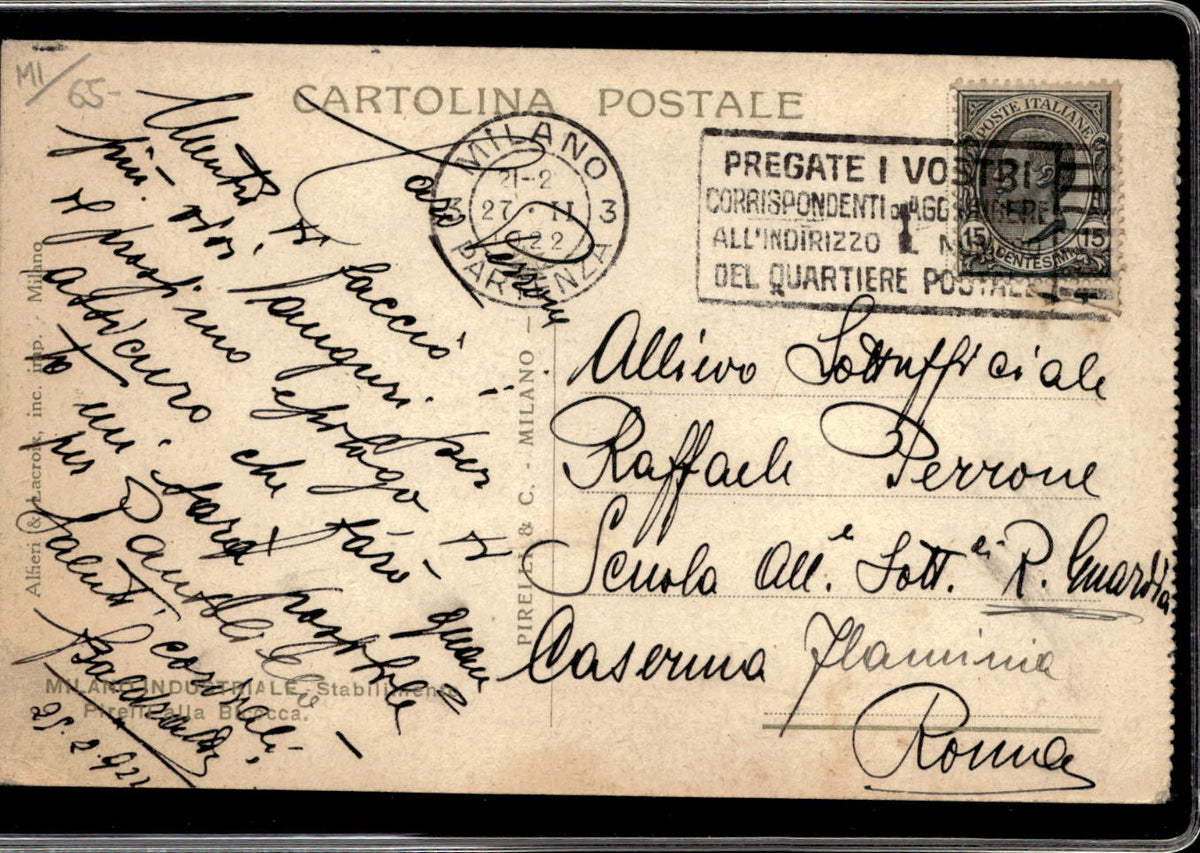 MI/65-
CARTOLINA POSTALE
MILANO 3
21-2
27·II
922
PARTENZA
PREGATE I VOSTRI
CORRISPONDENTI AGGIUNGERE
ALL'INDIRIZZO IL N
DEL QUARTIERE POSTALE
POSTE ITALIANE
15 15
CENTESIMI
Caro Perrone
Mentre ti faccio i
più vivi auguri per
il prossimo epilogo ti
assicuro che farò quan
to mi sarà possibile
per
Saluti cordiali
25.2.922
Allievo Sottufficiale
Raffaele Perrone
Scuola All.e Sott.ei R. Guardia
Caserma Flaminia
Roma
PIRELLI & C. - MILANO -
Alfieri & Lacroix, inc. imp. - Milano
MILANO INDUSTRIALE. Stabilimento
Pirelli alla Bicocca.